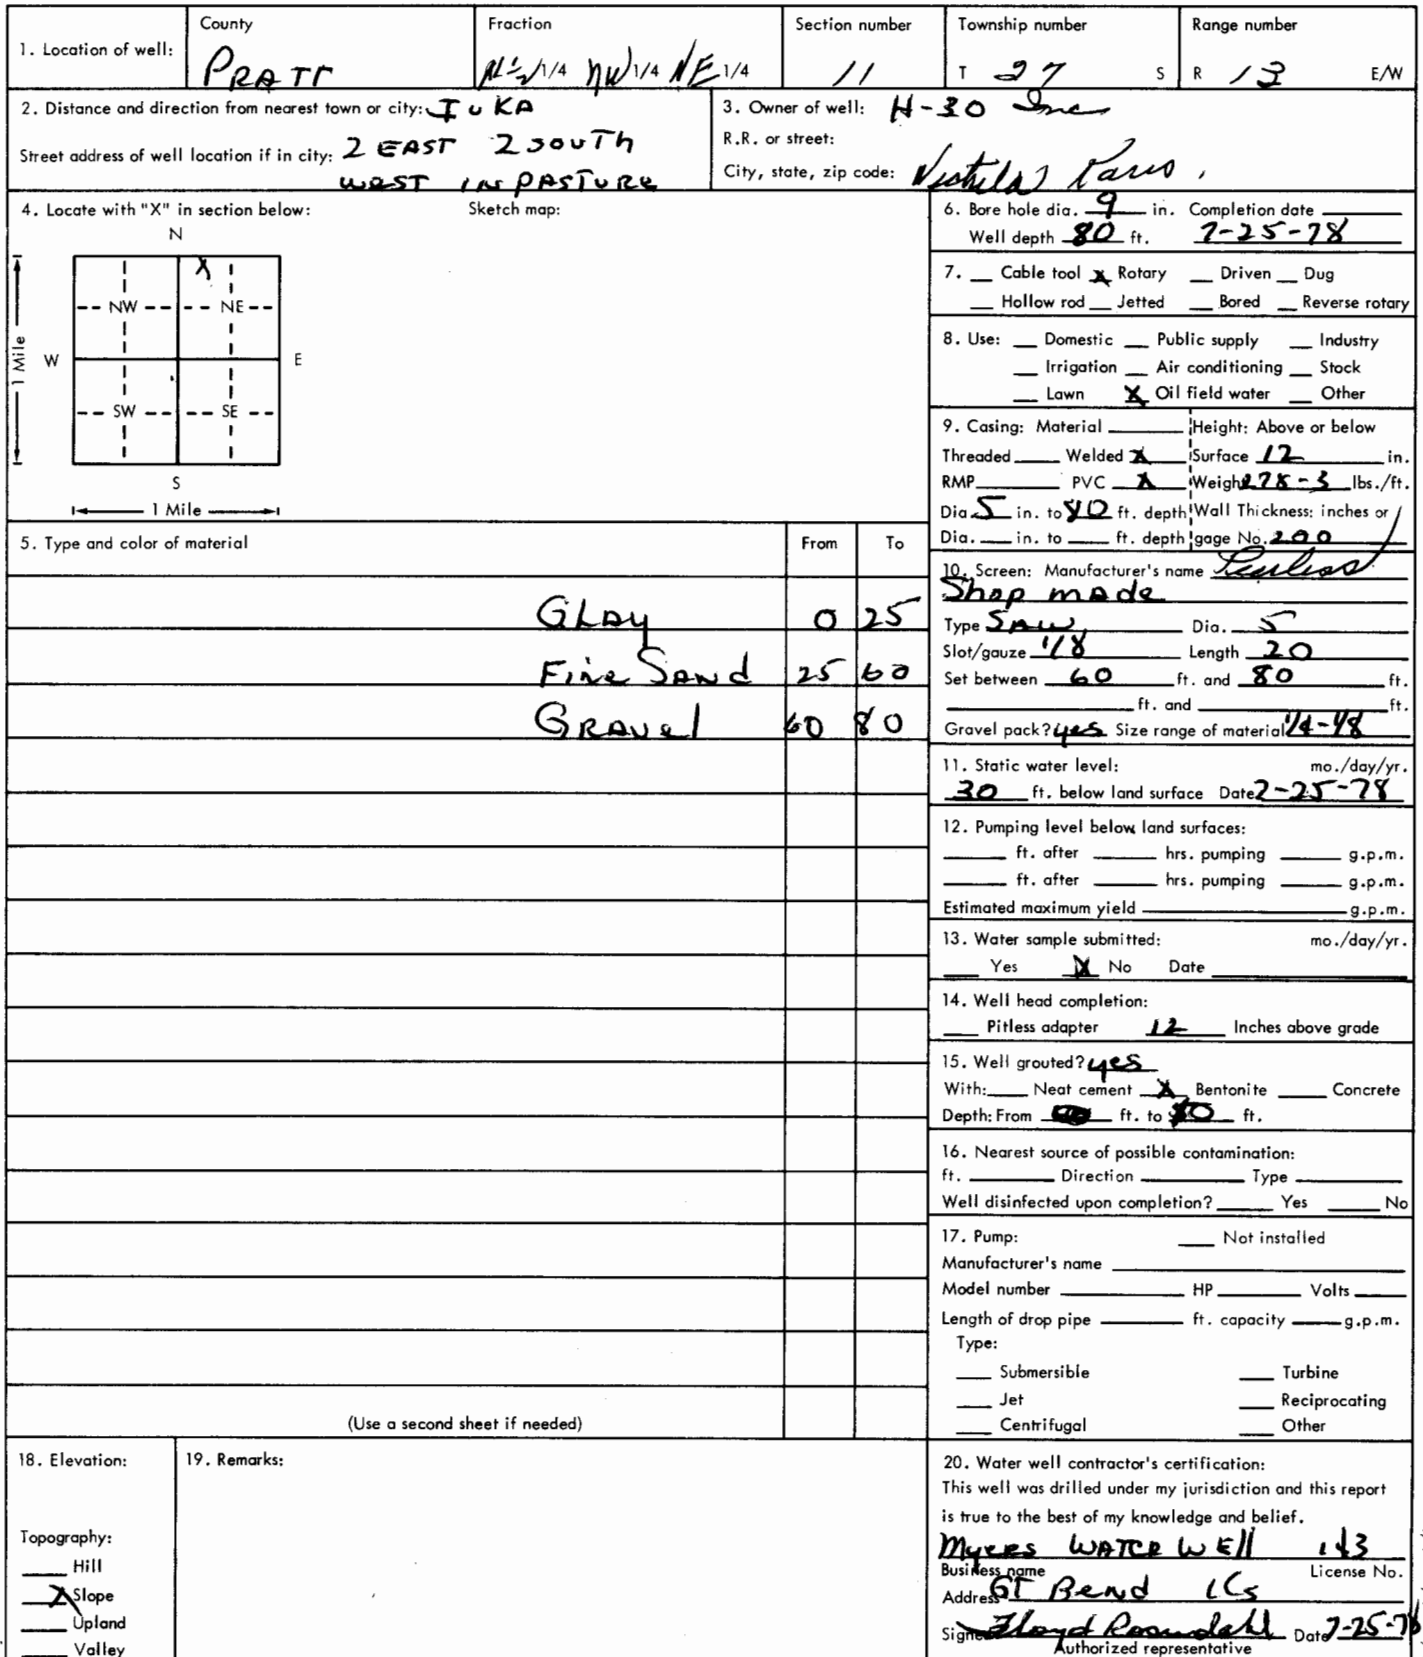 1. Location of well: County PRATT Fraction 1/4 NW 1/4 NE 1/4 Section number 11 Township number T 27 S Range number R 13 E/W
2. Distance and direction from nearest town or city: IUKA
Street address of well location if in city: 2 EAST 2 SOUTH
WEST IN PASTURE
3. Owner of well: H-30 Inc
R.R. or street:
City, state, zip code:
4. Locate with "X" in section below: Sketch map:
N
X
NW NE
W E
1 Mile
SW SE
S
1 Mile
5. Type and color of material From To
GLAY 0 25
Fine SAND 25 60
GRAVel 60 80
(Use a second sheet if needed)
6. Bore hole dia. 9 in. Completion date
Well depth 80 ft. 7-25-78
7. Cable tool X Rotary Driven Dug
Hollow rod Jetted Bored Reverse rotary
8. Use: Domestic Public supply Industry
Irrigation Air conditioning Stock
Lawn X Oil field water Other
9. Casing: Material Height: Above or below
Threaded Welded X Surface 12 in.
RMP PVC X Weight 278-3 lbs./ft.
Dia. 5 in. to 80 ft. depth Wall Thickness: inches or
Dia. in. to ft. depth gage No. 200
10. Screen: Manufacturer's name Peerless
Shop made
Type SAW Dia. 5
Slot/gauze 1/8 Length 20
Set between 60 ft. and 80 ft.
ft. and ft.
Gravel pack? yes Size range of material 1/4-1/8
11. Static water level: mo./day/yr.
30 ft. below land surface Date 7-25-78
12. Pumping level below land surfaces:
ft. after hrs. pumping g.p.m.
ft. after hrs. pumping g.p.m.
Estimated maximum yield g.p.m.
13. Water sample submitted: mo./day/yr.
Yes X No Date
14. Well head completion:
Pitless adapter 12 Inches above grade
15. Well grouted? yes
With: Neat cement X Bentonite Concrete
Depth: From ft. to ft.
16. Nearest source of possible contamination:
ft. Direction Type
Well disinfected upon completion? Yes No
17. Pump: Not installed
Manufacturer's name
Model number HP Volts
Length of drop pipe ft. capacity g.p.m.
Type:
Submersible Turbine
Jet Reciprocating
Centrifugal Other
18. Elevation:
Topography:
Hill
X Slope
Upland
Valley
19. Remarks:
20. Water well contractor's certification:
This well was drilled under my jurisdiction and this report
is true to the best of my knowledge and belief.
Myers WATER WEll 143
Business name License No.
Address GT Bend KS
Signed Floyd Date 7-25-78
Authorized representative